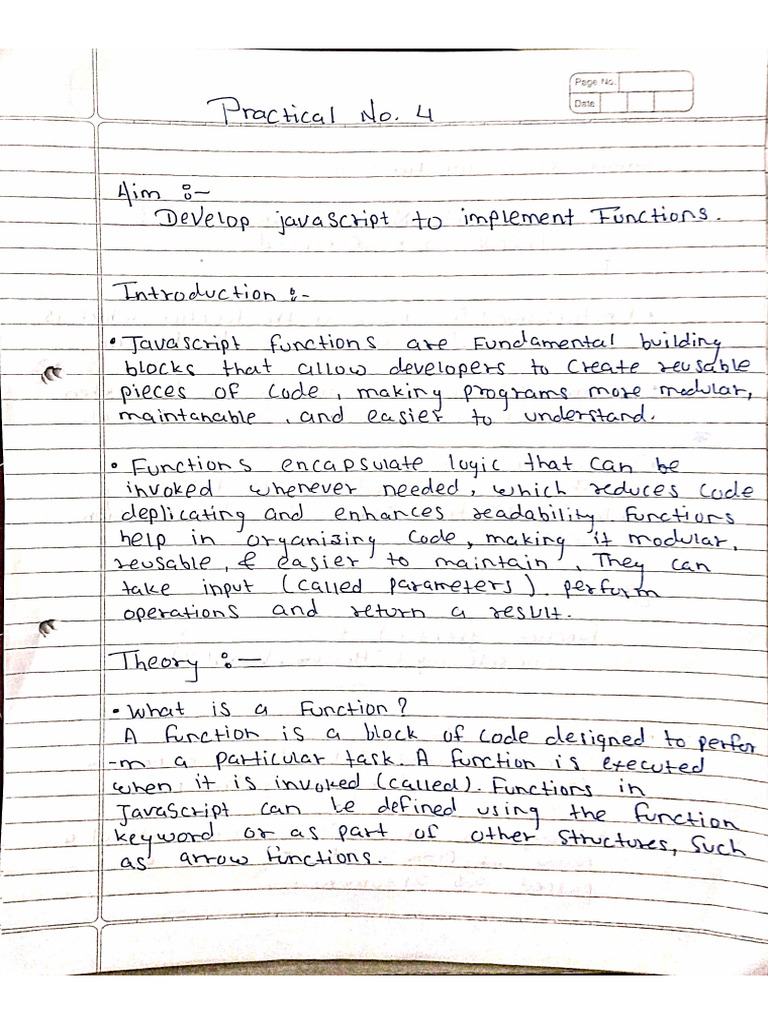 Page No.
Date
Practical No. 4
Aim :-
Develop javascript to implement Functions.
Introduction :-
• Javascript functions are Fundamental building
blocks that allow developers to create reusable
pieces of code, making programs more modular,
maintanable , and easier to understand.
• Functions encapsulate logic that can be
invoked whenever needed, which reduces code
deplicating and enhances readability. functions
help in organising code, making it modular,
reusable, & easier to maintain. They can
take input (called parameters). perform
operations and return a result.
Theory :-
• What is a Function?
A function is a block of code designed to perfor
-m a particular task. A function is executed
when it is invoked (called). Functions in
JavaScript can be defined using the function
keyword or as part of other structures, such
as arrow functions.